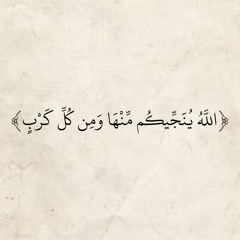 ﴿اللَّهُ يُنَجِّيكُم مِّنْهَا وَمِن كُلِّ كَرْبٍ﴾